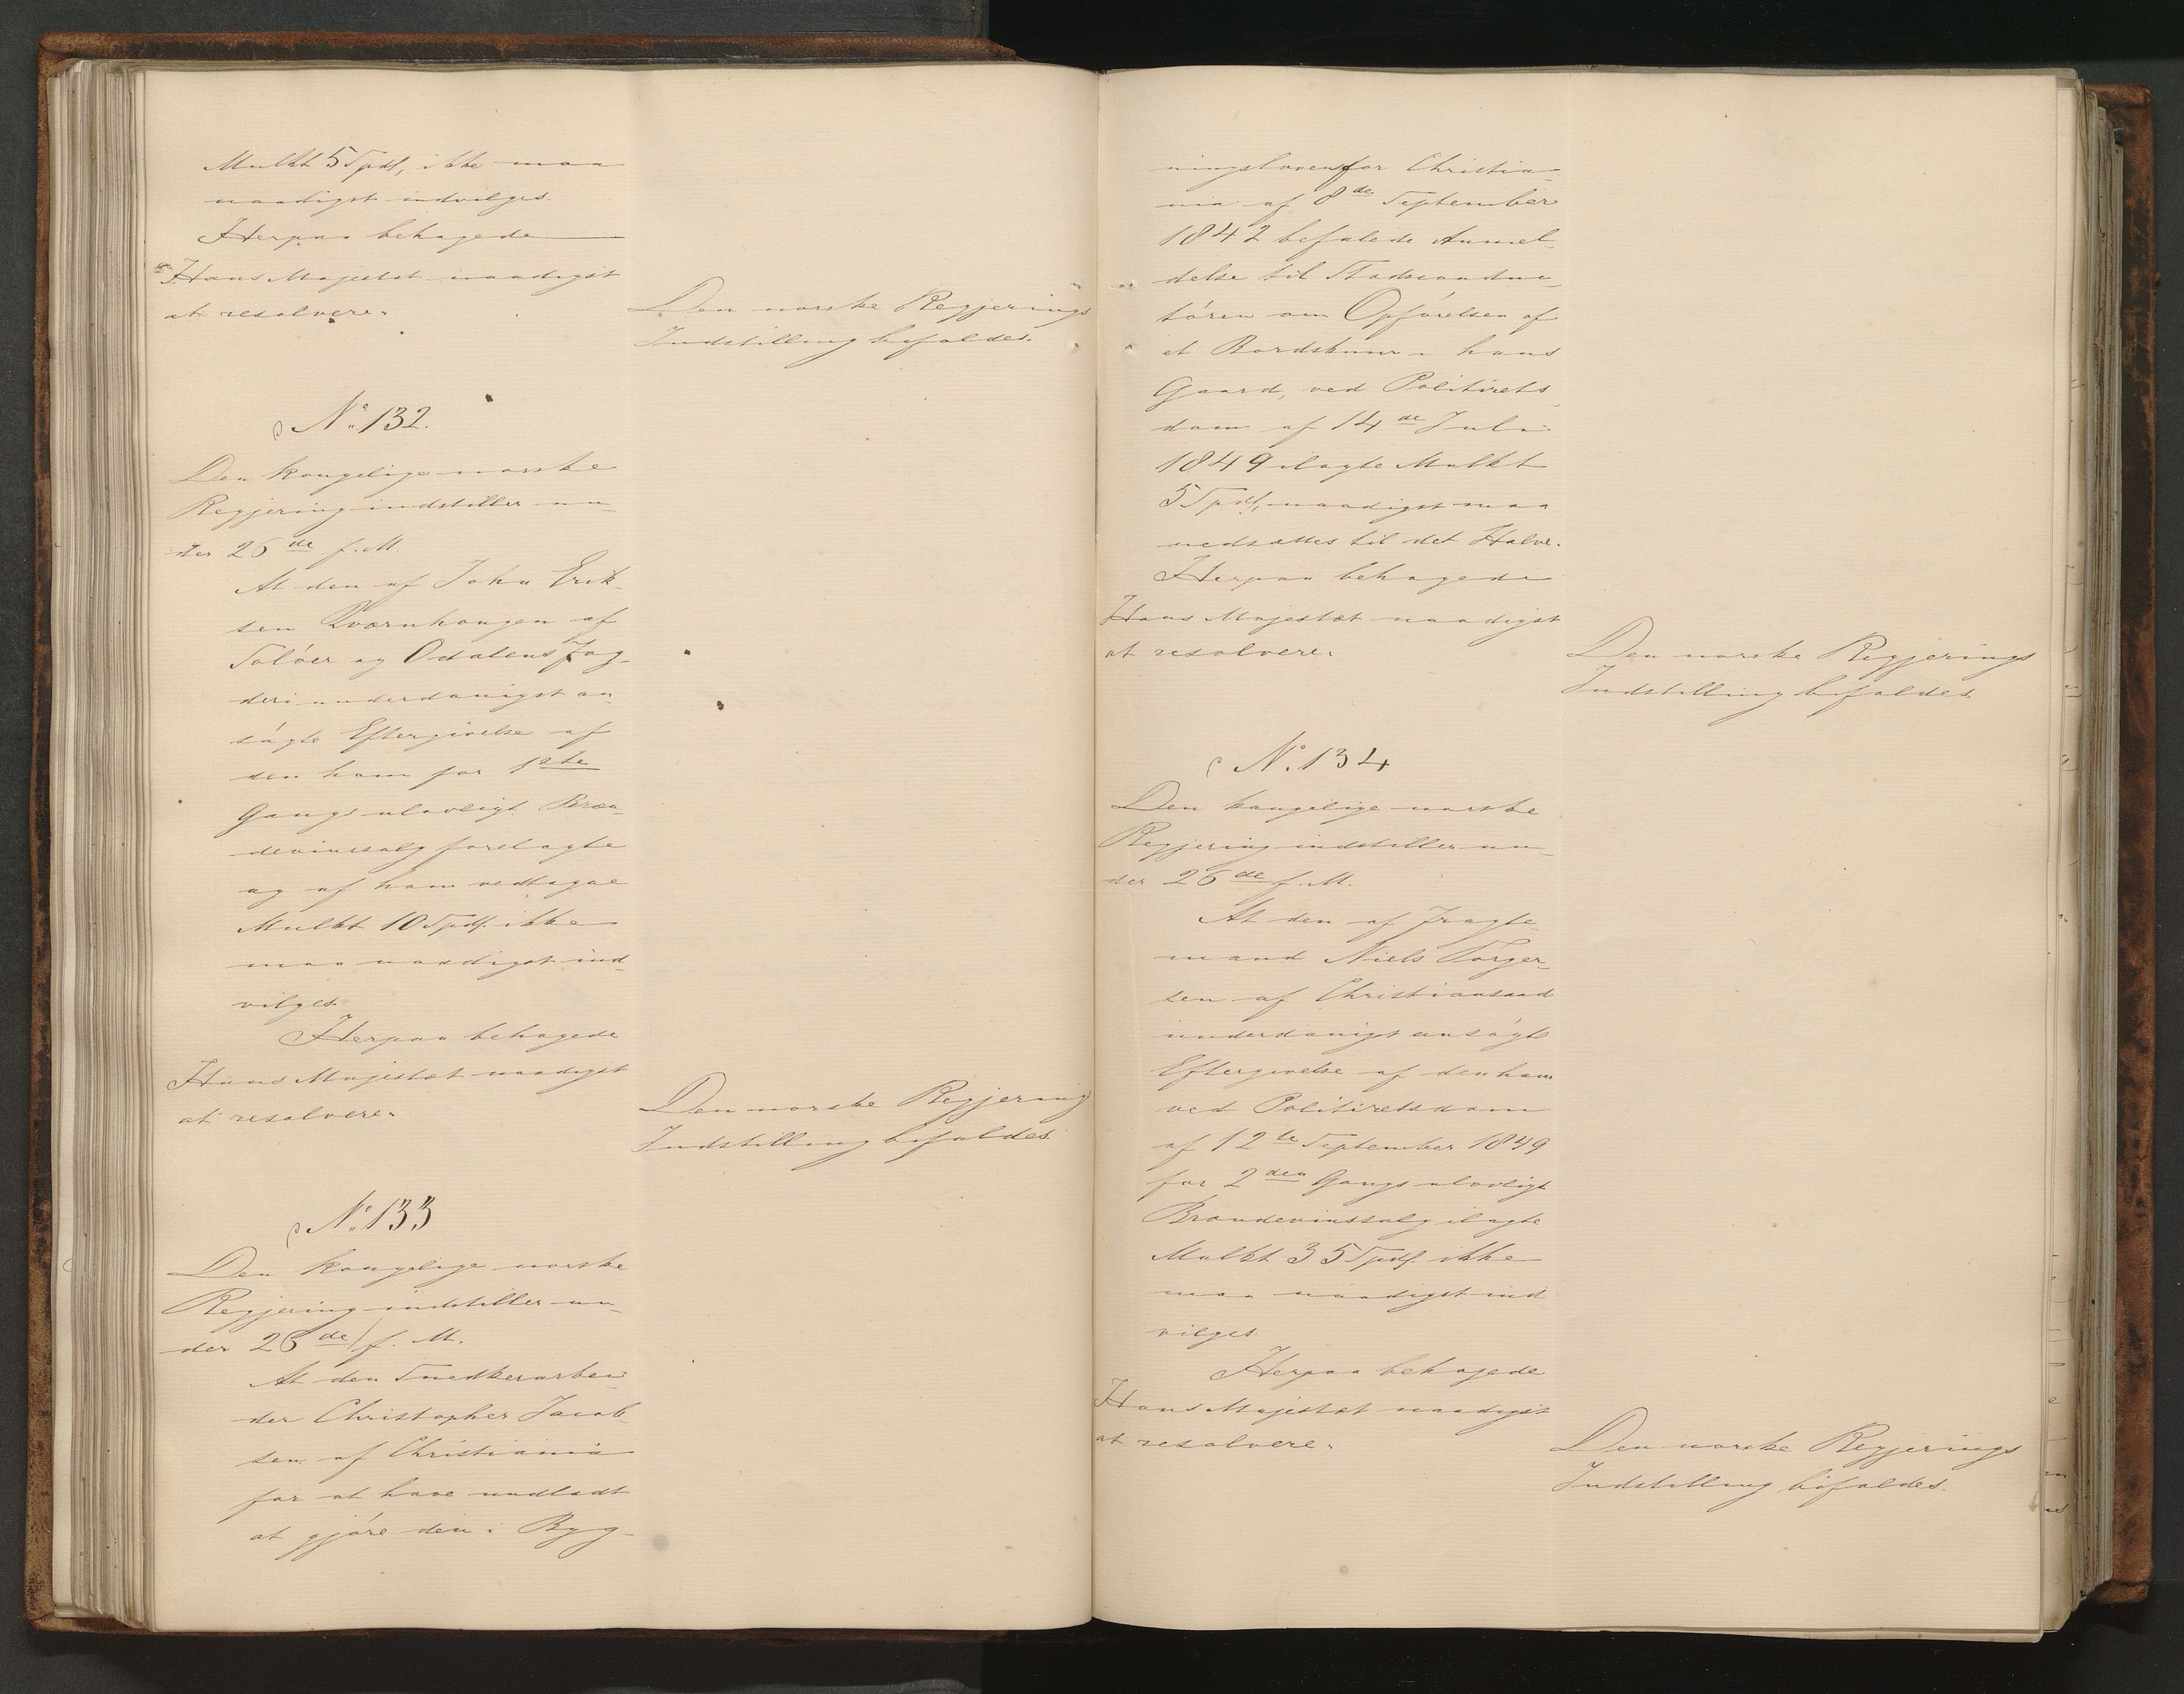 Mulkt 5 Spdl, ikke maa
naadigst indvilges.
Herpaa behagede
Hans Majestæt naadigst
at resolvere:
Den norske Regjerings
Indstilling bifaldes.
No 132.
Den kongelige norske
Regjering indstiller un-
der 26de f. M.
At den af John Erik-
sen Kværnhaugen af
Solöer og Odalens Fog-
deri underdanigst an-
søgte Eftergivelse af
den ham for 1ste
Gangs ulovligt Bræn-
deviinssalg forelagte
og af ham vedtagne
Mulkt 10 Spdl. ikke
maa naadigst ind-
vilges.
Herpaa behagede
Hans Majestæt naadigst
at resolvere:
Den norske Regjering
Indstilling bifaldes.
No 133
Den kongelige norske
Regjering indstiller un-
der 26de f. M.
At den Snedkerarbei-
der Christopher Jacob-
sen af Christiania
for at have undladt
at gjöre den i Byg-
ningsloven for Christia-
nia af 8de September
1842 befalede Anmel-
delse til Stadsconduc-
tören om Opförelsen af
et Bordskuur i hans
Gaard, ved Politirets-
dom af 14de Juli
1849 ilagte Mulkt
5 Spdl, naadigst maa
nedsættes til det Halve.
Herpaa behagede
Hans Majestæt naadigst
at resolvere:
Den norske Regjerings
Indstilling bifaldes.
No 134
Den kongelige norske
Regjering indstiller un-
der 26de f. M.
At den af Fragte-
mand Niels Torger-
sen af Christiansand
underdanigst ansøgte
Eftergivelse af den ham
ved Politiretsdom
af 12te September 1849
for 2den Gangs ulovligt
Brændeviinssalg ilagte
Mulkt 35 Spdl. ikke
maa naadigst ind
vilges.
Herpaa behagede
Hans Majestæt naadigst
at resolvere:
Den norske Regjerings
Indstilling bifaldes.